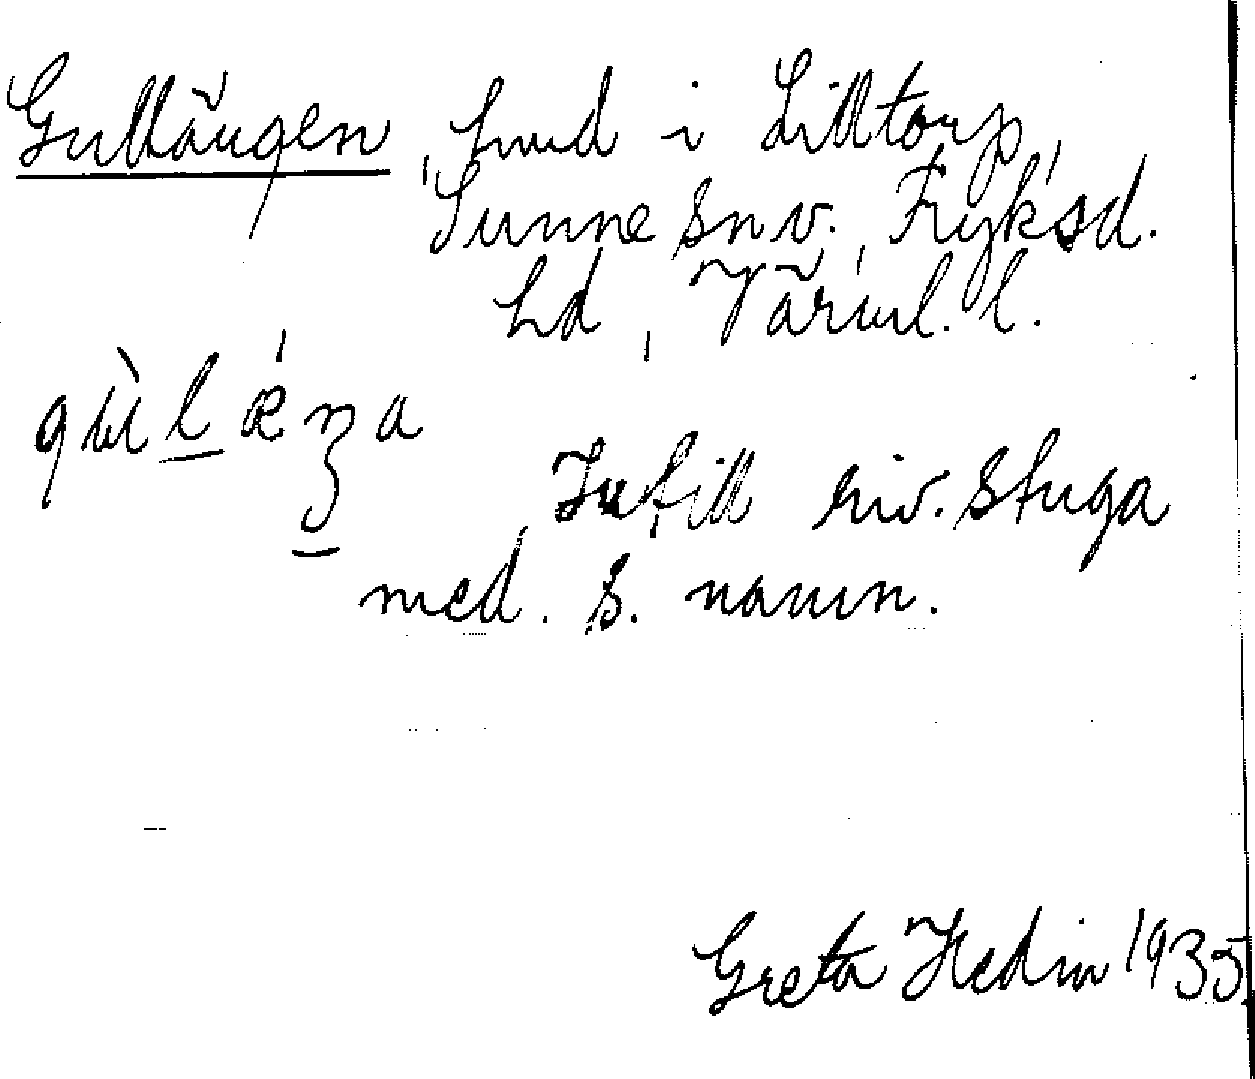 Gullängen, hmd i Lilltorp,
Sunne sn v., Fryksd.
hd, Värml. l.
gùlǽŋa
Intill riv. stuga
med s. namn.
Greta Hedin 1935